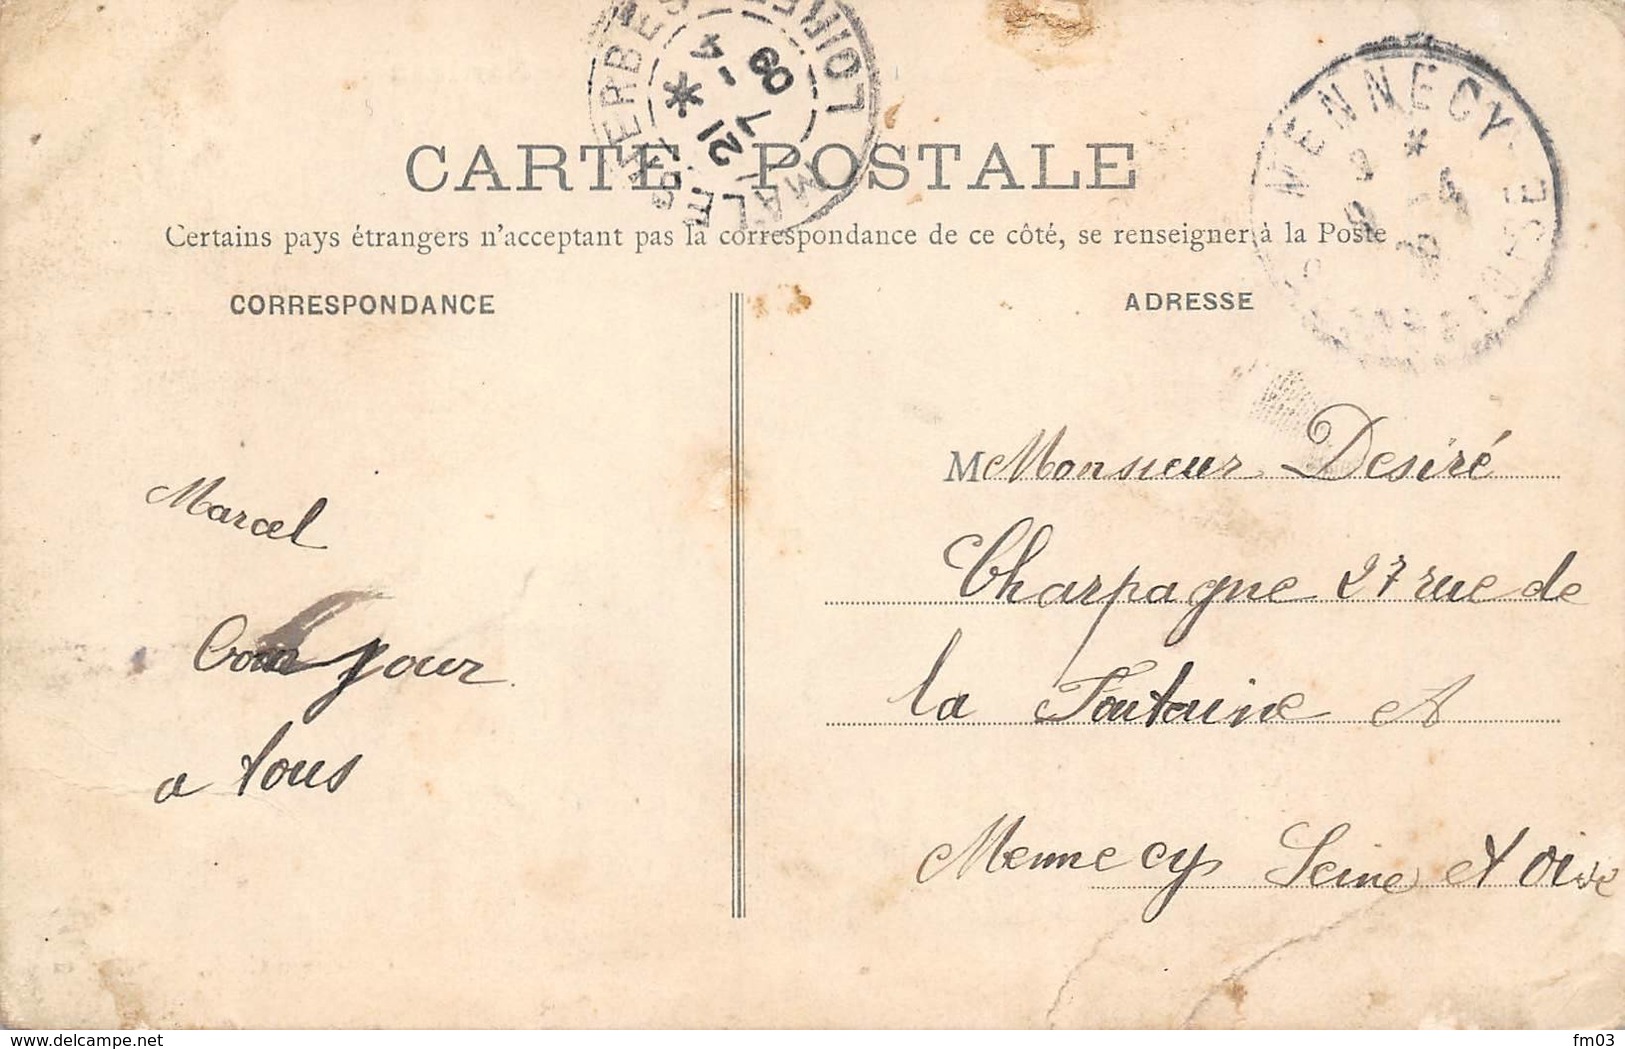 CARTE POSTALE
Certains pays étrangers n'acceptant pas la correspondance de ce côté, se renseigner à la Poste
CORRESPONDANCE
Marcel
jour
a tous
ADRESSE
M Monsieur Desiré
Charpagne 27 rue de
la Fontaine A
Mennecy Seine et Oise
MALESHERBES
LOIRET
21
4
09
MENNECY
SEINE-ET-OISE
delcampe.net
fm03